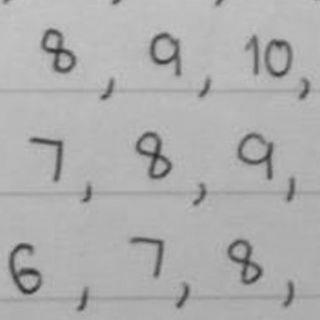 8, 9, 10,
7, 8, 9,
6, 7, 8,